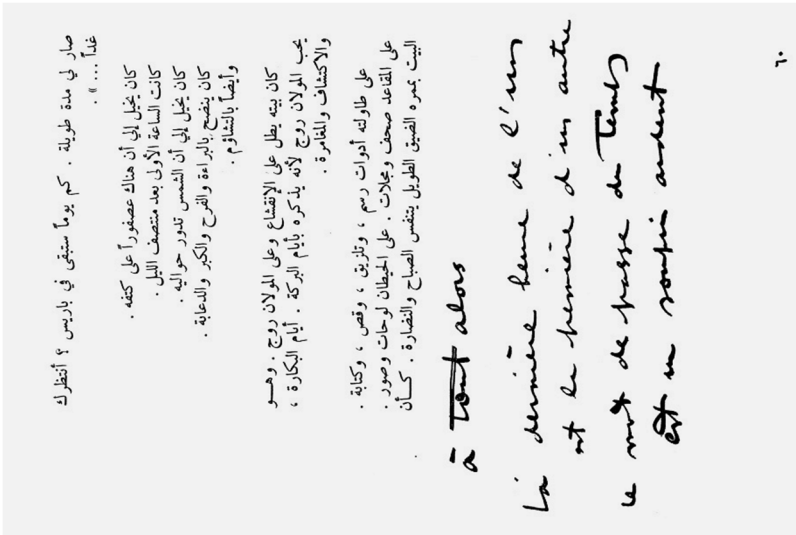 صار لي مدة طويلة . كم يوماً ستبقى في باريس ؟ أنتظرك
غداً ... » .
كان يخيل إلي أن هناك عصفوراً على كتفه .
كانت الساعة الأولى بعد منتصف الليل .
كان يخيل إلي أن الشمس تدور حواليه .
كان ينضح بالبراءة والفرح والكبر والدعابة .
وأيضاً بالتشاؤم .
كان بيته يطل على الإنقشاع وعلى المولان روج . وهو
يحب المولان روج لأنه يذكره بأيام البركة . أيام البكارة ،
والاكتشاف والمغامرة .
على طاولته أدوات رسم ، وتلزيق ، وقص ، وكتابة .
على المقاعد صحف ومجلات . على الحيطان لوحات وصور .
البيت بممره الضيق الطويل يتنفس الصباح والنضارة . كأن
à tout alors
La dernière heure de l'un
et la première d'un autre
le mot de passe du Temps
est un soupir ardent
٦٠